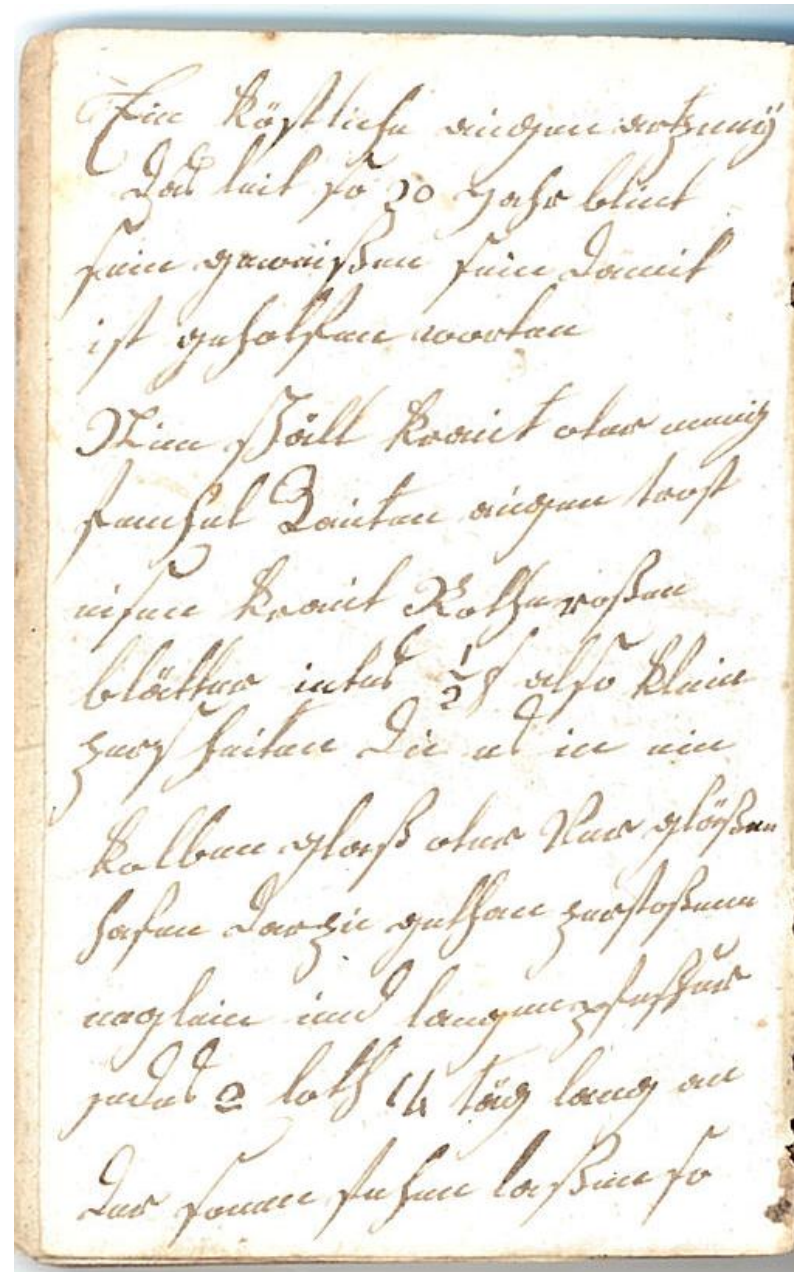 Ein köstliche augen artzney
das leit so 20 Jahr blint
sein geweißen sein damit
ist geholfen worten
Nim schöll kraut oter menig
fenchel Rauten augen trost
eisen kraut Rothe roßen
blätter jetes ½ also klein
zerschniten die es in ein
kolben glaß oter glößen
hafen darzu gethan zerstoßene
neglein und langen pfeffer
jedes 2 loth 14 täg lang an
der sonen stehen laßen so